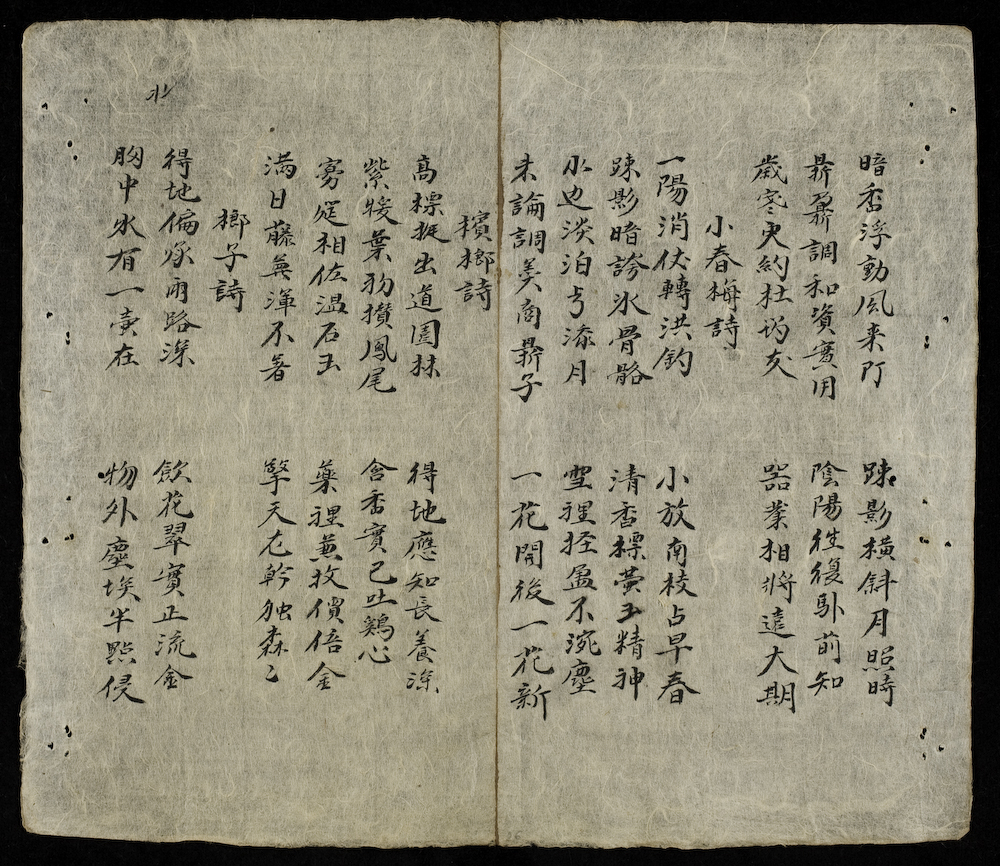 暗香浮動風来㕂 踈影橫斜月照時
鼎鼐調和資實用 陰陽徃復卧前知
歲寒更約杜 友 器業相將遠大期
小春梅詩
一陽消伏轉洪鈞 小放南枝占早春
踈影暗誇氷骨骼 清香標蕚玉精神
水边淡泊 添月 雪裡 盈不涴塵
未論調羙商鼎子 一花開後一花新
檳榔詩
髙標挺出道園林 得地應知長養深
紫 葉 攅鳳尾 含香實已吐鷄心
相佐温石玉 藥裡兼收價倍金
滿日藤 渾不著 擎天 幹独森〻
榔子詩
得地偏承雨露深 飲花翠實正流金
胸中氷有一壷在 物外塵埃半點侵